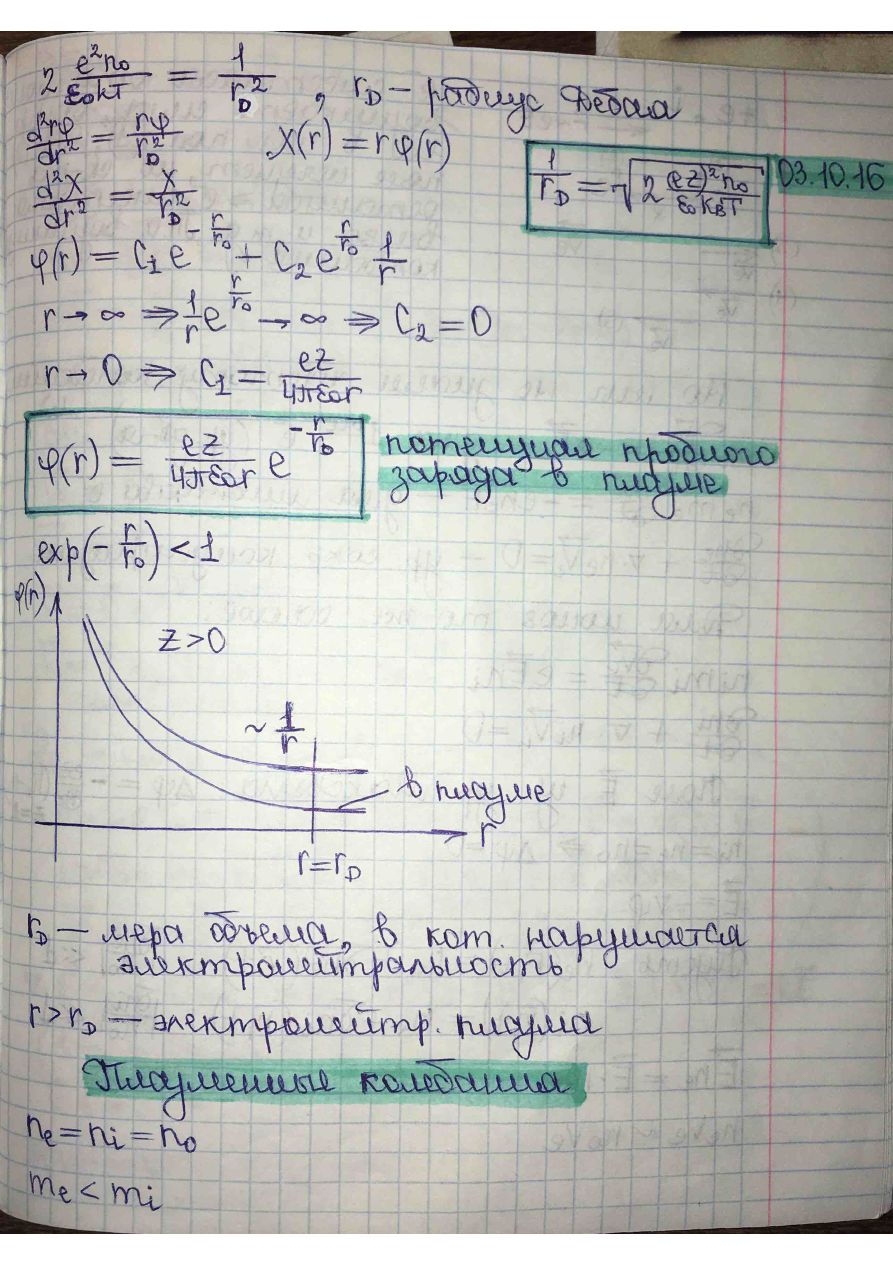 2 e²n₀/ε₀kT = 1/r_D² , r_D — радиус Дебая
d²rφ/dr² = rφ/r_D² X(r) = rφ(r)
1/r_D = √(2 (ez)²n₀/ε₀k_BT) 03.10.16
d²X/dr² = X/r_D²
φ(r) = C₁ e^(-r/r₀) + C₂ e^(r/r₀) 1/r
r → ∞ ⇒ 1/r e^(r/r₀) → ∞ ⇒ C₂ = 0
r → 0 ⇒ C₁ = ez/4πε₀r
φ(r) = ez/4πε₀r e^(-r/r_D) потенциал пробного
заряда в плазме
exp(-r/r₀) < 1
φ(r)
z > 0
~ 1/r
в плазме
r
r = r_D
r_D — мера объема, в кот. нарушается
электронейтральность
r > r_D — электронейтр. плазма
Плазменные колебания
n_e = n_i = n₀
m_e < m_i